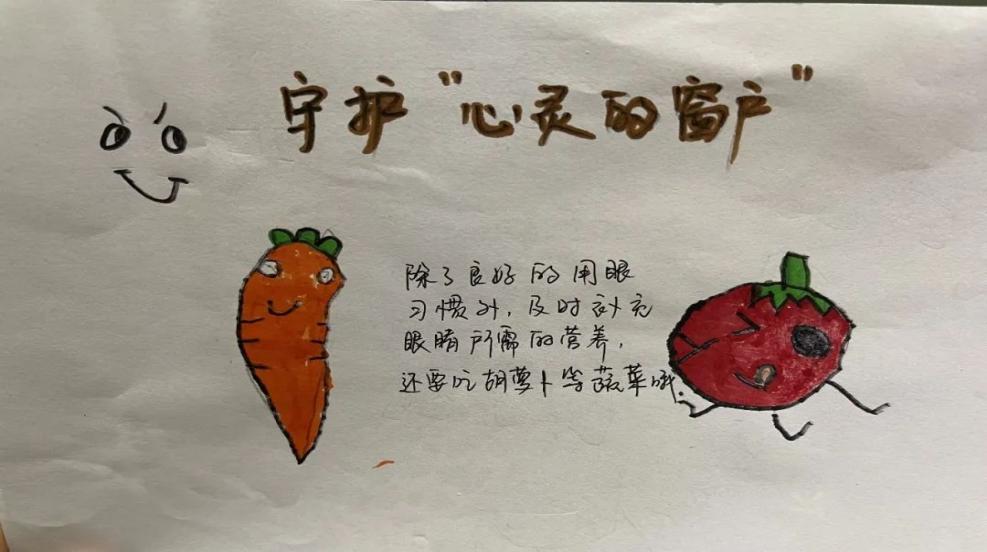 守护“心灵的窗户”
除了良好的用眼
习惯外，及时补充
眼睛所需的营养，
还要吃胡萝卜等蔬菜哦.